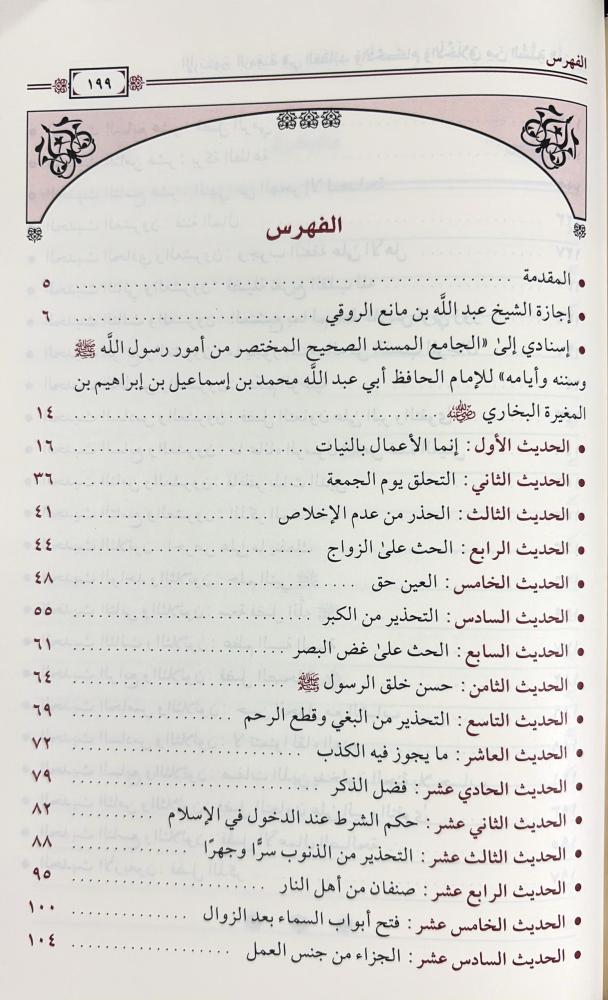 الفهرس
١٩٩
الفهرس
• المقدمة ٥
• إجازة الشيخ عبد اللَّه بن مانع الروقي ٦
• إسنادي إلىٰ «الجامع المسند الصحيح المختصر من أمور رسول اللَّه ﷺ
وسننه وأيامه» للإمام الحافظ أبي عبد اللَّه محمد بن إسماعيل بن إبراهيم بن
المغيرة البخاري رضي الله عنه ١٤
• الحديث الأول : إنما الأعمال بالنيات ١٦
• الحديث الثاني : التحلق يوم الجمعة ٣٦
• الحديث الثالث : الحذر من عدم الإخلاص ٤١
• الحديث الرابع : الحث علىٰ الزواج ٤٤
• الحديث الخامس : العين حق ٤٨
• الحديث السادس : التحذير من الكبر ٥٥
• الحديث السابع : الحث علىٰ غض البصر ٦١
• الحديث الثامن : حسن خلق الرسول ﷺ ٦٤
• الحديث التاسع : التحذير من البغي وقطع الرحم ٦٩
• الحديث العاشر : ما يجوز فيه الكذب ٧٢
• الحديث الحادي عشر : فضل الذكر ٧٩
• الحديث الثاني عشر : حكم الشرط عند الدخول في الإسلام ٨٢
• الحديث الثالث عشر : التحذير من الذنوب سرًّا وجهرًا ٨٨
• الحديث الرابع عشر : صنفان من أهل النار ٩٥
• الحديث الخامس عشر : فتح أبواب السماء بعد الزوال ١٠٠
• الحديث السادس عشر : الجزاء من جنس العمل ١٠٤